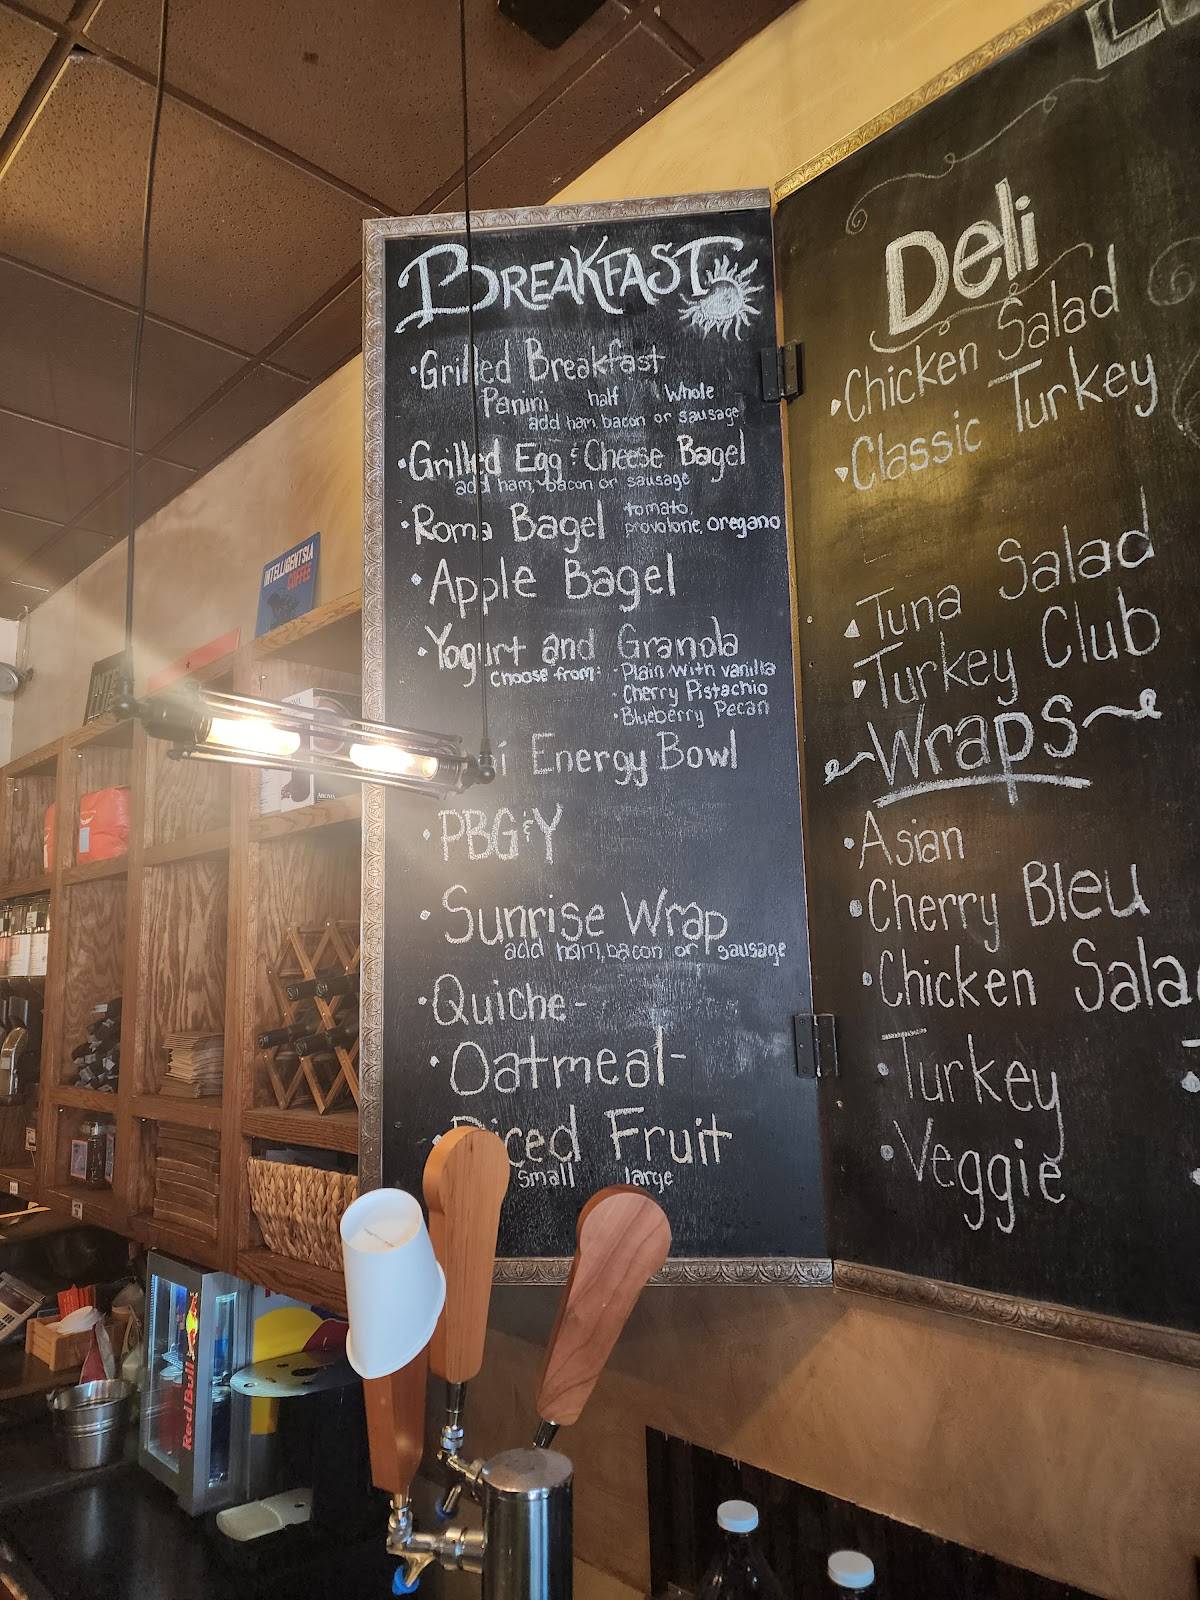 BREAKFAST
·Grilled Breakfast
Panini half Whole
add ham, bacon or sausage
·Grilled Egg & Cheese Bagel
add ham, bacon or sausage
·Roma Bagel tomato,
provolone, oregano
·Apple Bagel
·Yogurt and Granola
choose from: ·Plain with vanilla
·Cherry Pistachio
·Blueberry Pecan
Energy Bowl
·PBG&Y
·Sunrise Wrap
add ham, bacon or sausage
·Quiche-
·Oatmeal-
·Diced Fruit
small large
Deli
Chicken Salad
Classic Turkey
Tuna Salad
Turkey Club
~Wraps~
·Asian
·Cherry Bleu
·Chicken Sala
·Turkey
·Veggie
INTELLIGENTSIA
COFFEE
Red Bull